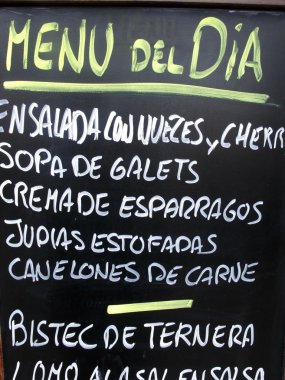 MENU DEL DíA
ENSALADA CON NUEZES y CHERR
SOPA DE GALETS
CREMA DE ESPARRAGOS
JUDIAS ESTOFADAS
CANELONES DE CARNE
BISTEC DE TERNERA
LOMO A LA SAL EN SALSA